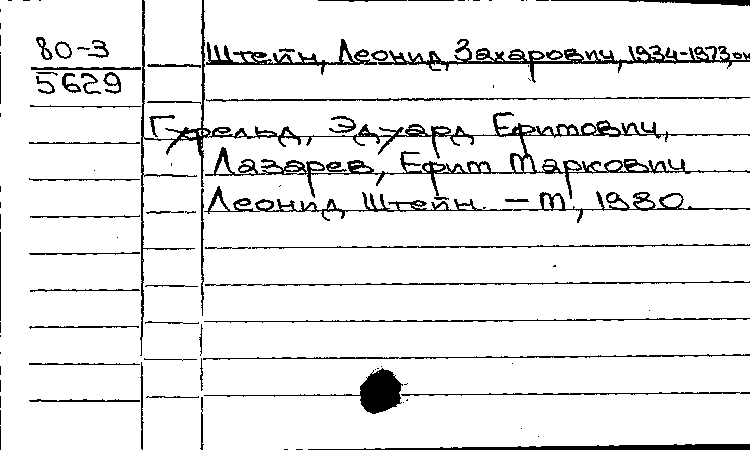 80-3
5629
Штейн, Леонид Захарович, 1934-1973, о
Гуфельд, Эдуард Ефимович,
Лазарев, Ефим Маркович
Леонид Штейн. - М, 1980.